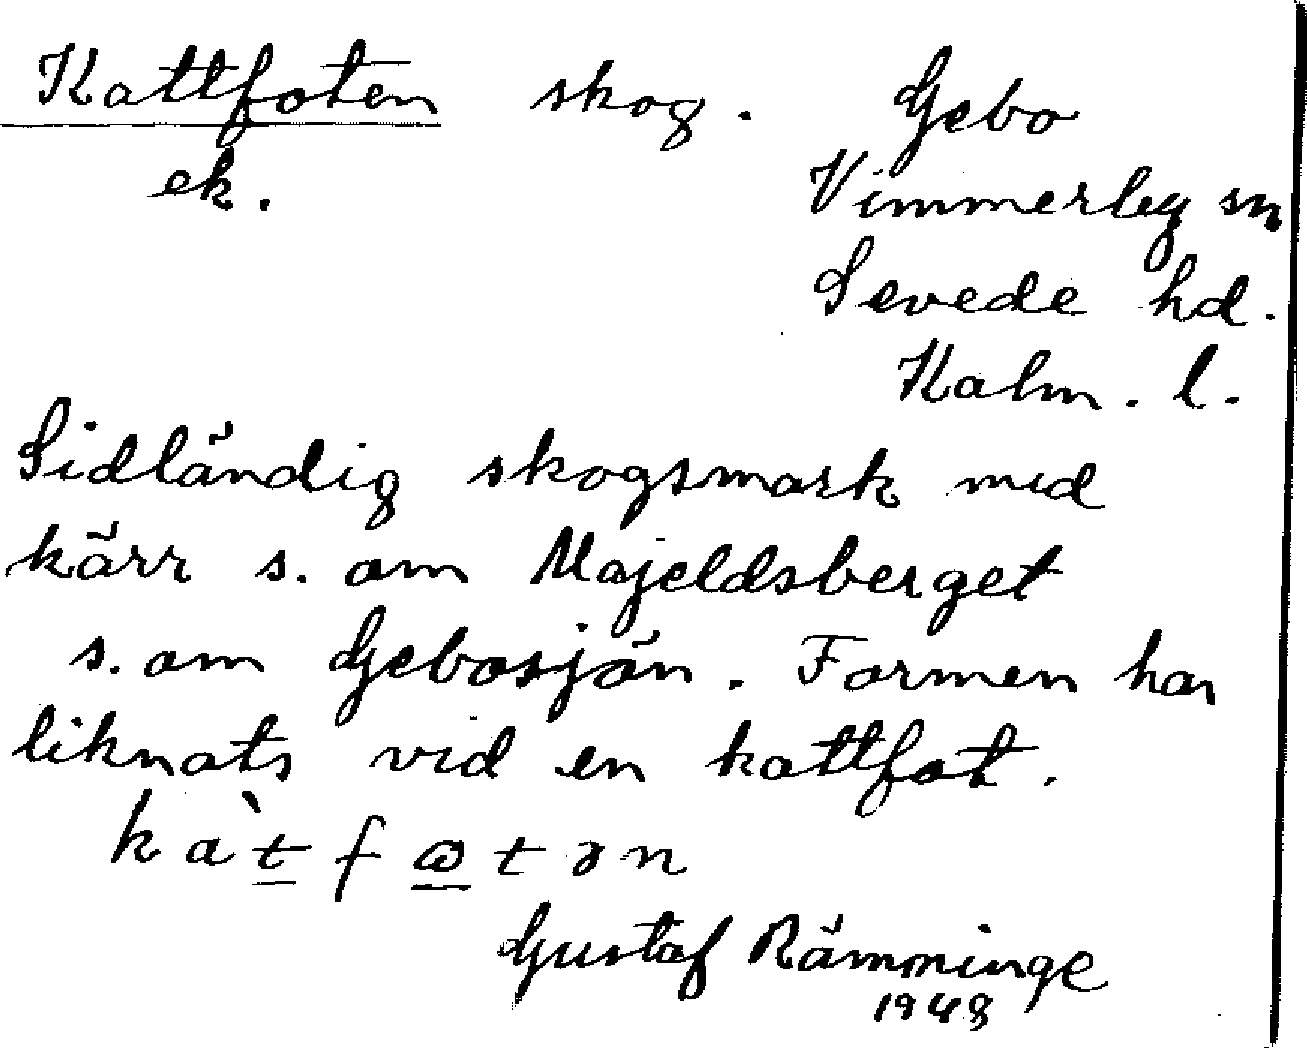 Kattfoten skog. Gebo
ek. Vimmerby sn
Sevede hd.
Kalm. l.
Sidländig skogsmark med
kärr s. om Majeldsberget
s. om Gebosjön. Formen har
liknats vid en kattfot.
kàt̲fω̲tən
Gustaf Rämminge
1948